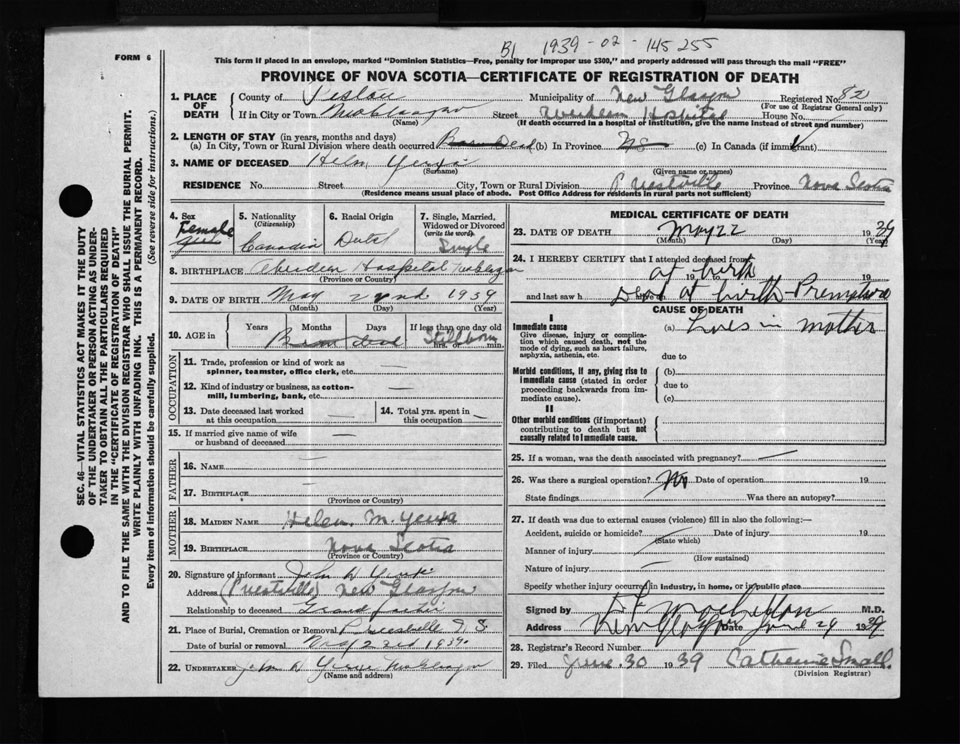 B1 1939-02-145255
FORM 6
This form if placed in an envelope, marked "Dominion Statistics—Free, penalty for improper use $300," and properly addressed will pass through the mail "FREE"
PROVINCE OF NOVA SCOTIA—CERTIFICATE OF REGISTRATION OF DEATH
1. PLACE OF DEATH
County of Municipality of New Glasgow Registered No. 82
(For use of Registrar General only)
If in City or Town Street Hospital House No.
(Name) (If death occurred in a hospital or institution, give the name instead of street and number)
2. LENGTH OF STAY (in years, months and days)
(a) In City, Town or Rural Division where death occurred Dead (b) In Province NS (c) In Canada (if immigrant)
3. NAME OF DECEASED Helen
(Surname) (Given name or names)
RESIDENCE No. Street City, Town or Rural Division Province Nova Scotia
(Residence means usual place of abode. Post Office Address for residents in rural parts not sufficient)
4. Sex Female
5. Nationality (Citizenship) Canadian
6. Racial Origin Dutch
7. Single, Married, Widowed or Divorced (write the word) Single
8. BIRTHPLACE Aberdeen Hospital
(Province or Country)
9. DATE OF BIRTH May 22nd 1939
(Month) (Day) (Year)
10. AGE in Years Months Days If less than one day old
Stillborn hrs. or min.
OCCUPATION
11. Trade, profession or kind of work as spinner, teamster, office clerk, etc. —
12. Kind of industry or business, as cotton-mill, lumbering, bank, etc. —
13. Date deceased last worked at this occupation —
14. Total yrs. spent in this occupation —
15. If married give name of wife or husband of deceased —
FATHER
16. NAME —
17. BIRTHPLACE —
(Province or Country)
MOTHER
18. MAIDEN NAME Helen M.
19. BIRTHPLACE Nova Scotia
(Province or Country)
20. Signature of informant John D
Address New Glasgow
Relationship to deceased Grand father
21. Place of Burial, Cremation or Removal N.S.
Date of burial or removal May 22nd 1939
22. UNDERTAKER John D
(Name and address)
MEDICAL CERTIFICATE OF DEATH
23. DATE OF DEATH May 22 1939
(Month) (Day) (Year)
24. I HEREBY CERTIFY that I attended deceased from
at birth 19
and last saw h alive on Dead at birth - 19
CAUSE OF DEATH
I
Immediate cause
Give disease, injury or complication which caused death, not the mode of dying, such as heart failure, asphyxia, asthenia, etc.
(a) in mother
due to
Morbid conditions, if any, giving rise to immediate cause (stated in order proceeding backwards from immediate cause).
(b)
due to
(c)
II
Other morbid conditions (if important) contributing to death but not causally related to immediate cause.
25. If a woman, was the death associated with pregnancy? —
26. Was there a surgical operation? No Date of operation 19
State findings Was there an autopsy?
27. If death was due to external causes (violence) fill in also the following:—
Accident, suicide or homicide? Date of injury 19
(State which)
Manner of injury
(How sustained)
Nature of injury —
Specify whether injury occurred in industry, in home, or in public place
Signed by M.D.
Address New Glasgow Date June 29 1939
28. Registrar's Record Number
29. Filed June 30 1939 Catherine Small.
(Division Registrar)
SEC. 46—VITAL STATISTICS ACT MAKES IT THE DUTY OF THE UNDERTAKER OR PERSON ACTING AS UNDERTAKER TO OBTAIN ALL THE PARTICULARS REQUIRED IN THE "CERTIFICATE OF REGISTRATION OF DEATH" AND TO FILE THE SAME WITH THE DIVISION REGISTRAR WHO SHALL ISSUE THE BURIAL PERMIT.
WRITE PLAINLY WITH UNFADING INK. THIS IS A PERMANENT RECORD.
Every item of information should be carefully supplied. (See reverse side for instructions.)